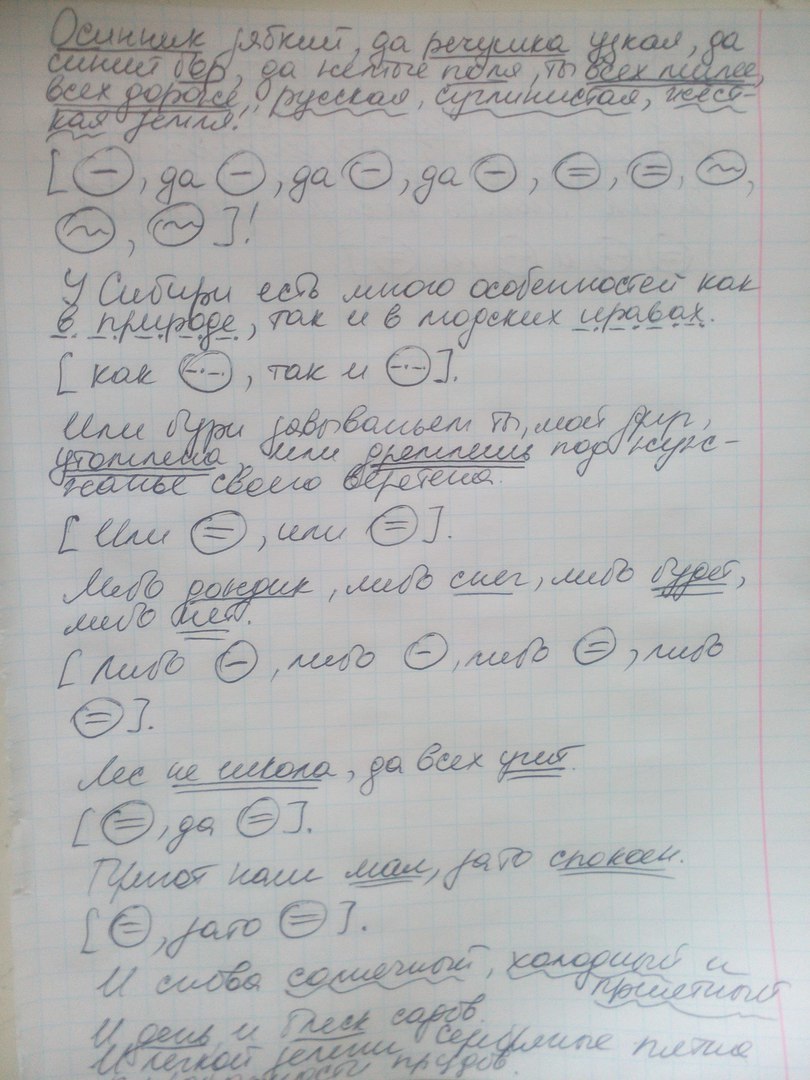 Осинник зябкий, да речушка узкая, да
синий бор, да желтые поля, ты всех милее,
всех дороже, русская, суглинистая, жёст-
кая земля!
[ –, да –, да –, да –, =, =, ~,
~, ~ ]!
У Сибири есть много особенностей как
в природе, так и в людских нравах.
[ как –·–, так и –·– ].
Или бури завываньем ты, мой друг,
утомлена, или дремлешь под жуж-
жанье своего веретена.
[ Или =, или = ].
Либо дождик, либо снег, либо будет,
либо нет.
[ Либо –, либо –, либо =, либо
= ].
Лес не школа, да всех учит.
[ =, да = ].
Приют наш мал, зато спокоен.
[ =, зато = ].
И снова солнечный, холодный и
приветный
И день, и блеск садов.
И легкой зелени серебряные пятна
прудов.